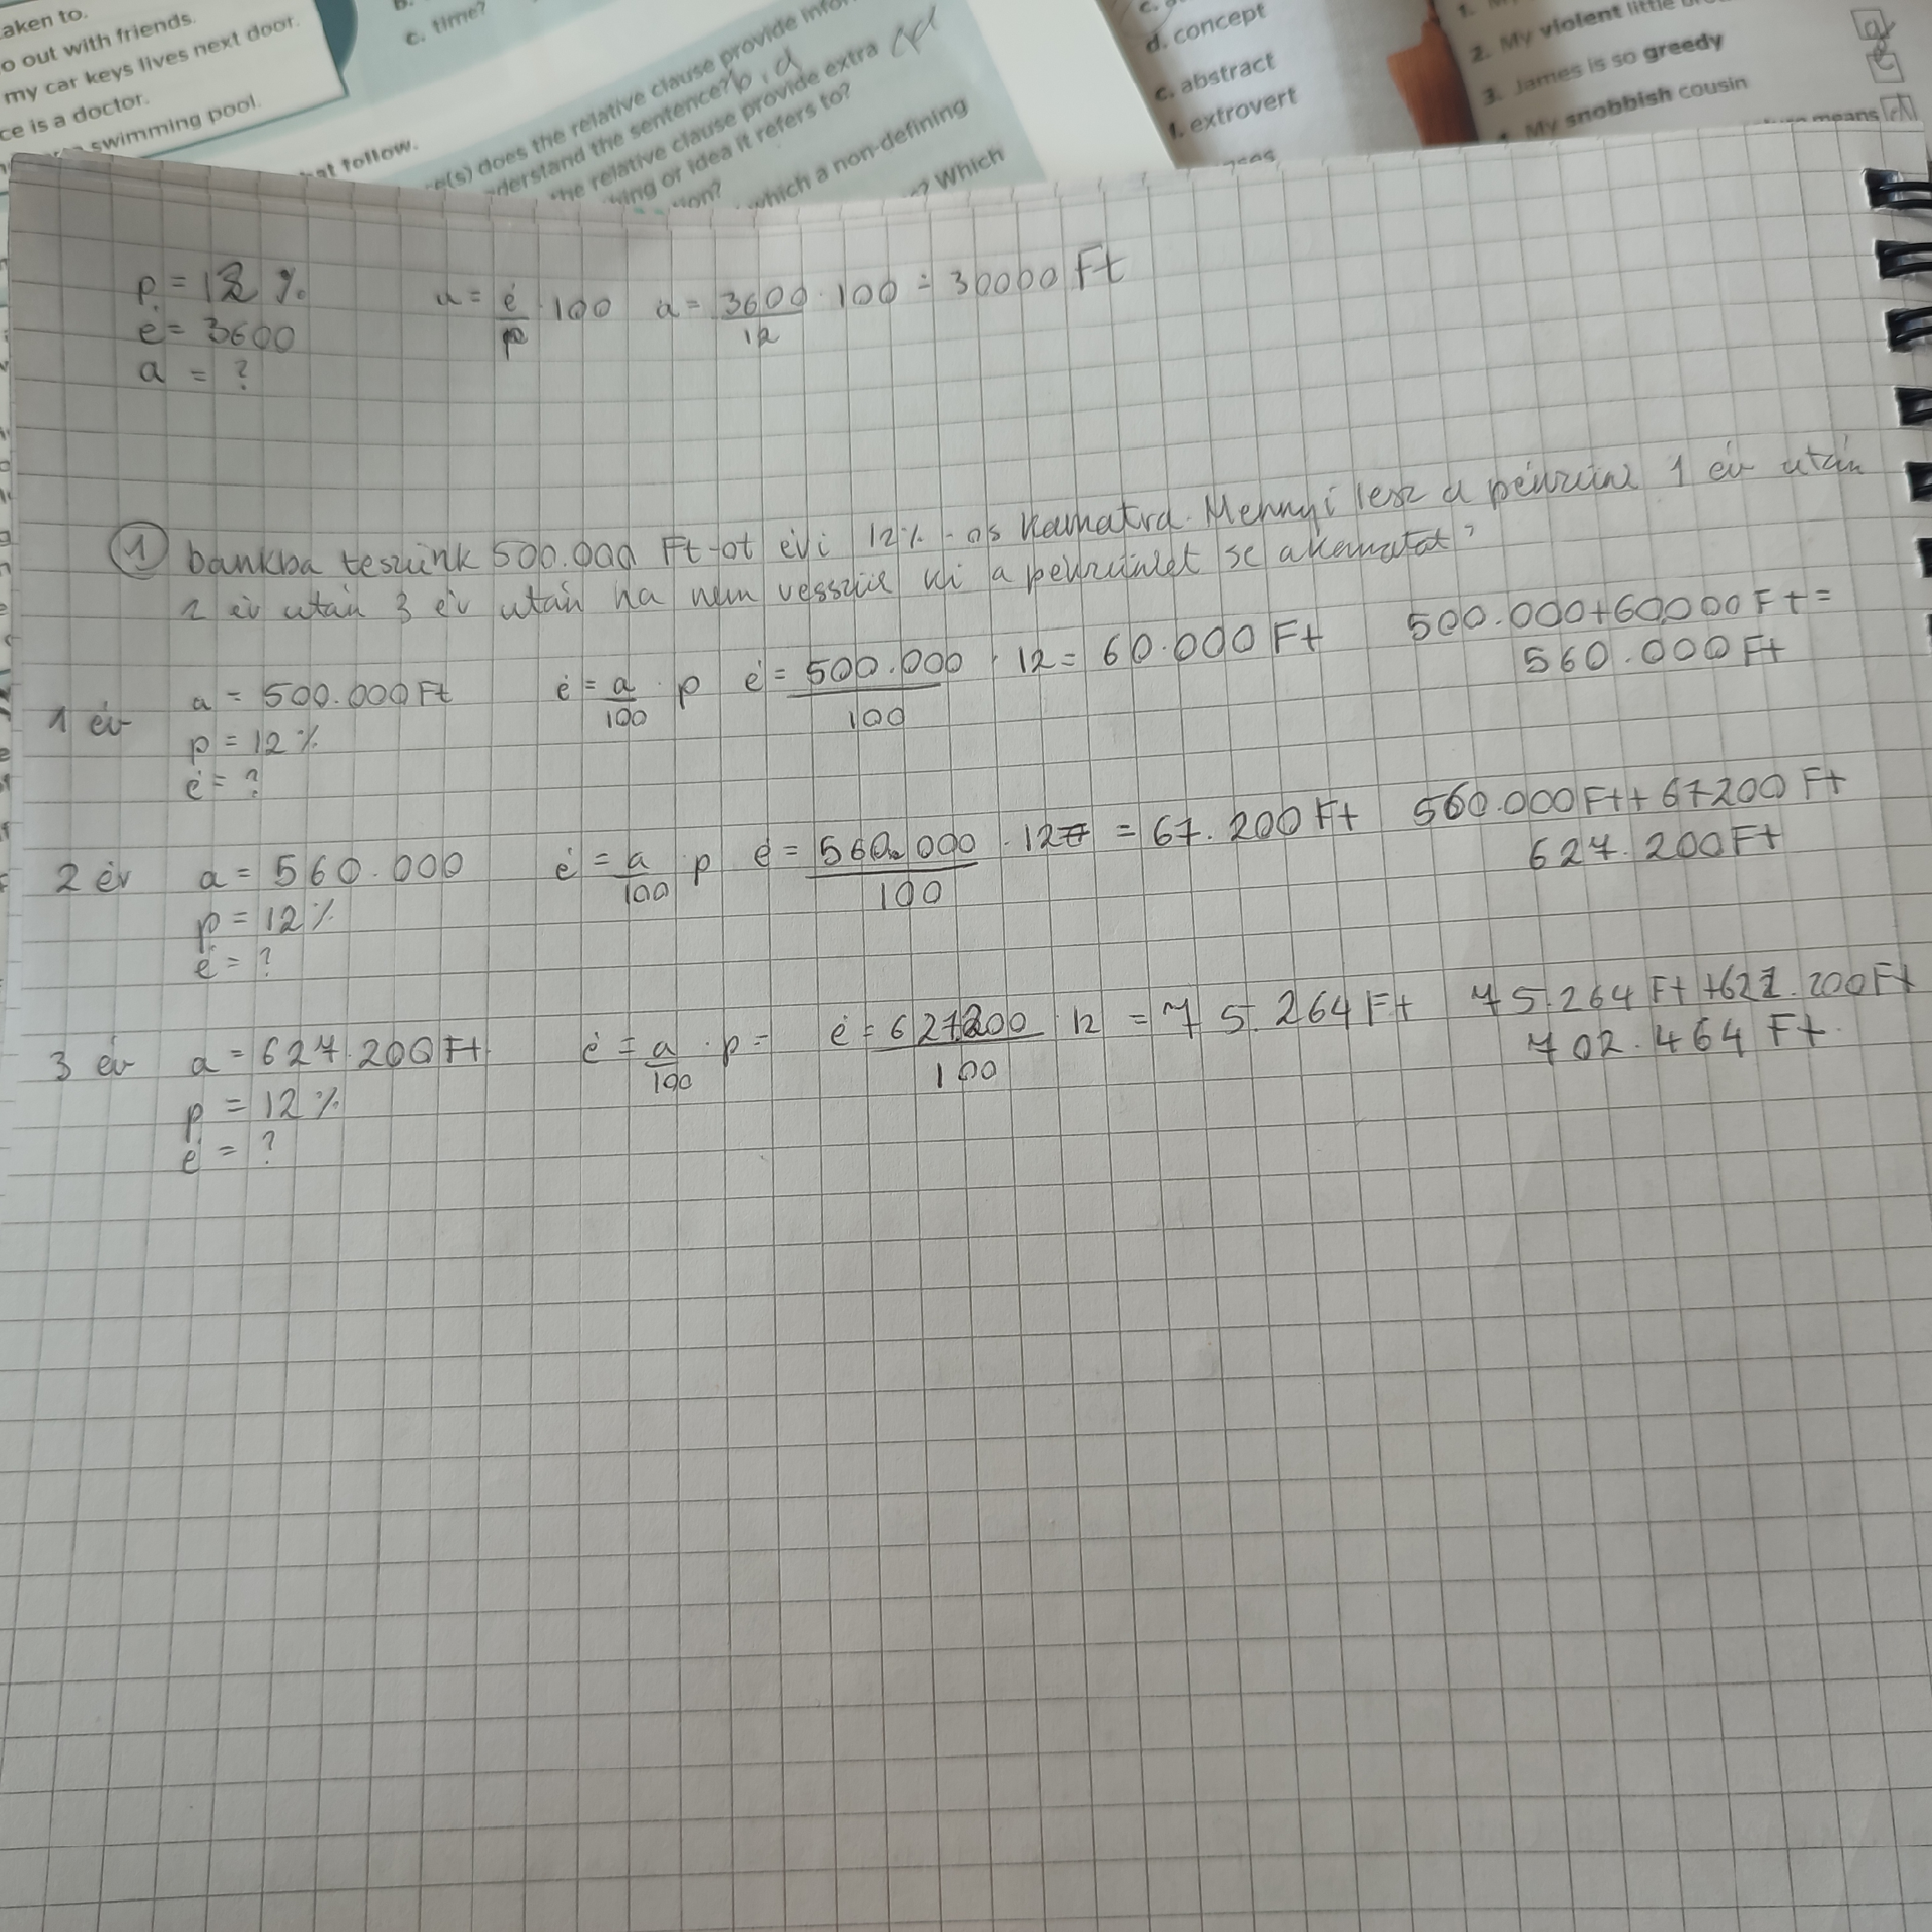 aken to.
o out with friends.
my car keys lives next door.
ce is a doctor.
swimming pool.
c. time?
at follow.
e(s) does the relative clause provide infor
derstand the sentence? b, d
the relative clause provide extra cd
hing or idea it refers to?
which a non-defining
? Which
d. concept
c. abstract
f. extrovert
2. My violent little
3. James is so greedy
My snobbish cousin
means
p = 12 %
é = 3600
a = ?
a = é/p · 100 a = 3600/12 · 100 = 30000 Ft
1 bankba teszünk 500.000 Ft-ot évi 12%-os kamatra. Mennyi lesz a pénzünk 1 év után
2 év után 3 év után ha nem vesszük ki a pénzünket se a kamatot?
1 év a = 500.000 Ft é = a/100 · p é = 500.000/100 · 12 = 60.000 Ft 500.000+60000 Ft =
560.000 Ft
p = 12 %
é = ?
2 év a = 560.000 é = a/100 · p é = 560.000/100 · 12 = 67.200 Ft 560.000 Ft + 67200 Ft
627.200 Ft
p = 12 %
é = ?
3 év a = 627.200 Ft é = a/100 · p = é = 627200/100 · 12 = 75.264 Ft 75.264 Ft + 627.200 Ft
702.464 Ft.
p = 12 %
é = ?